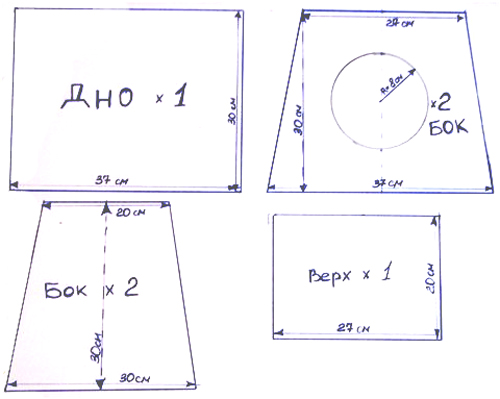 Дно × 1
30 см
37 см
27 см
30 см
R = 8 см
×2
БОК
37 см
20 см
Бок × 2
30 см
30 см
Верх × 1
20 см
27 см